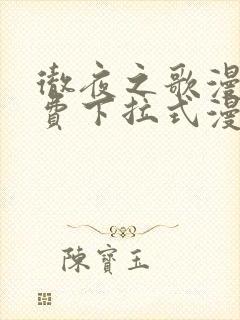 徹夜之歌漫
費下拉式漫
陳寶玉